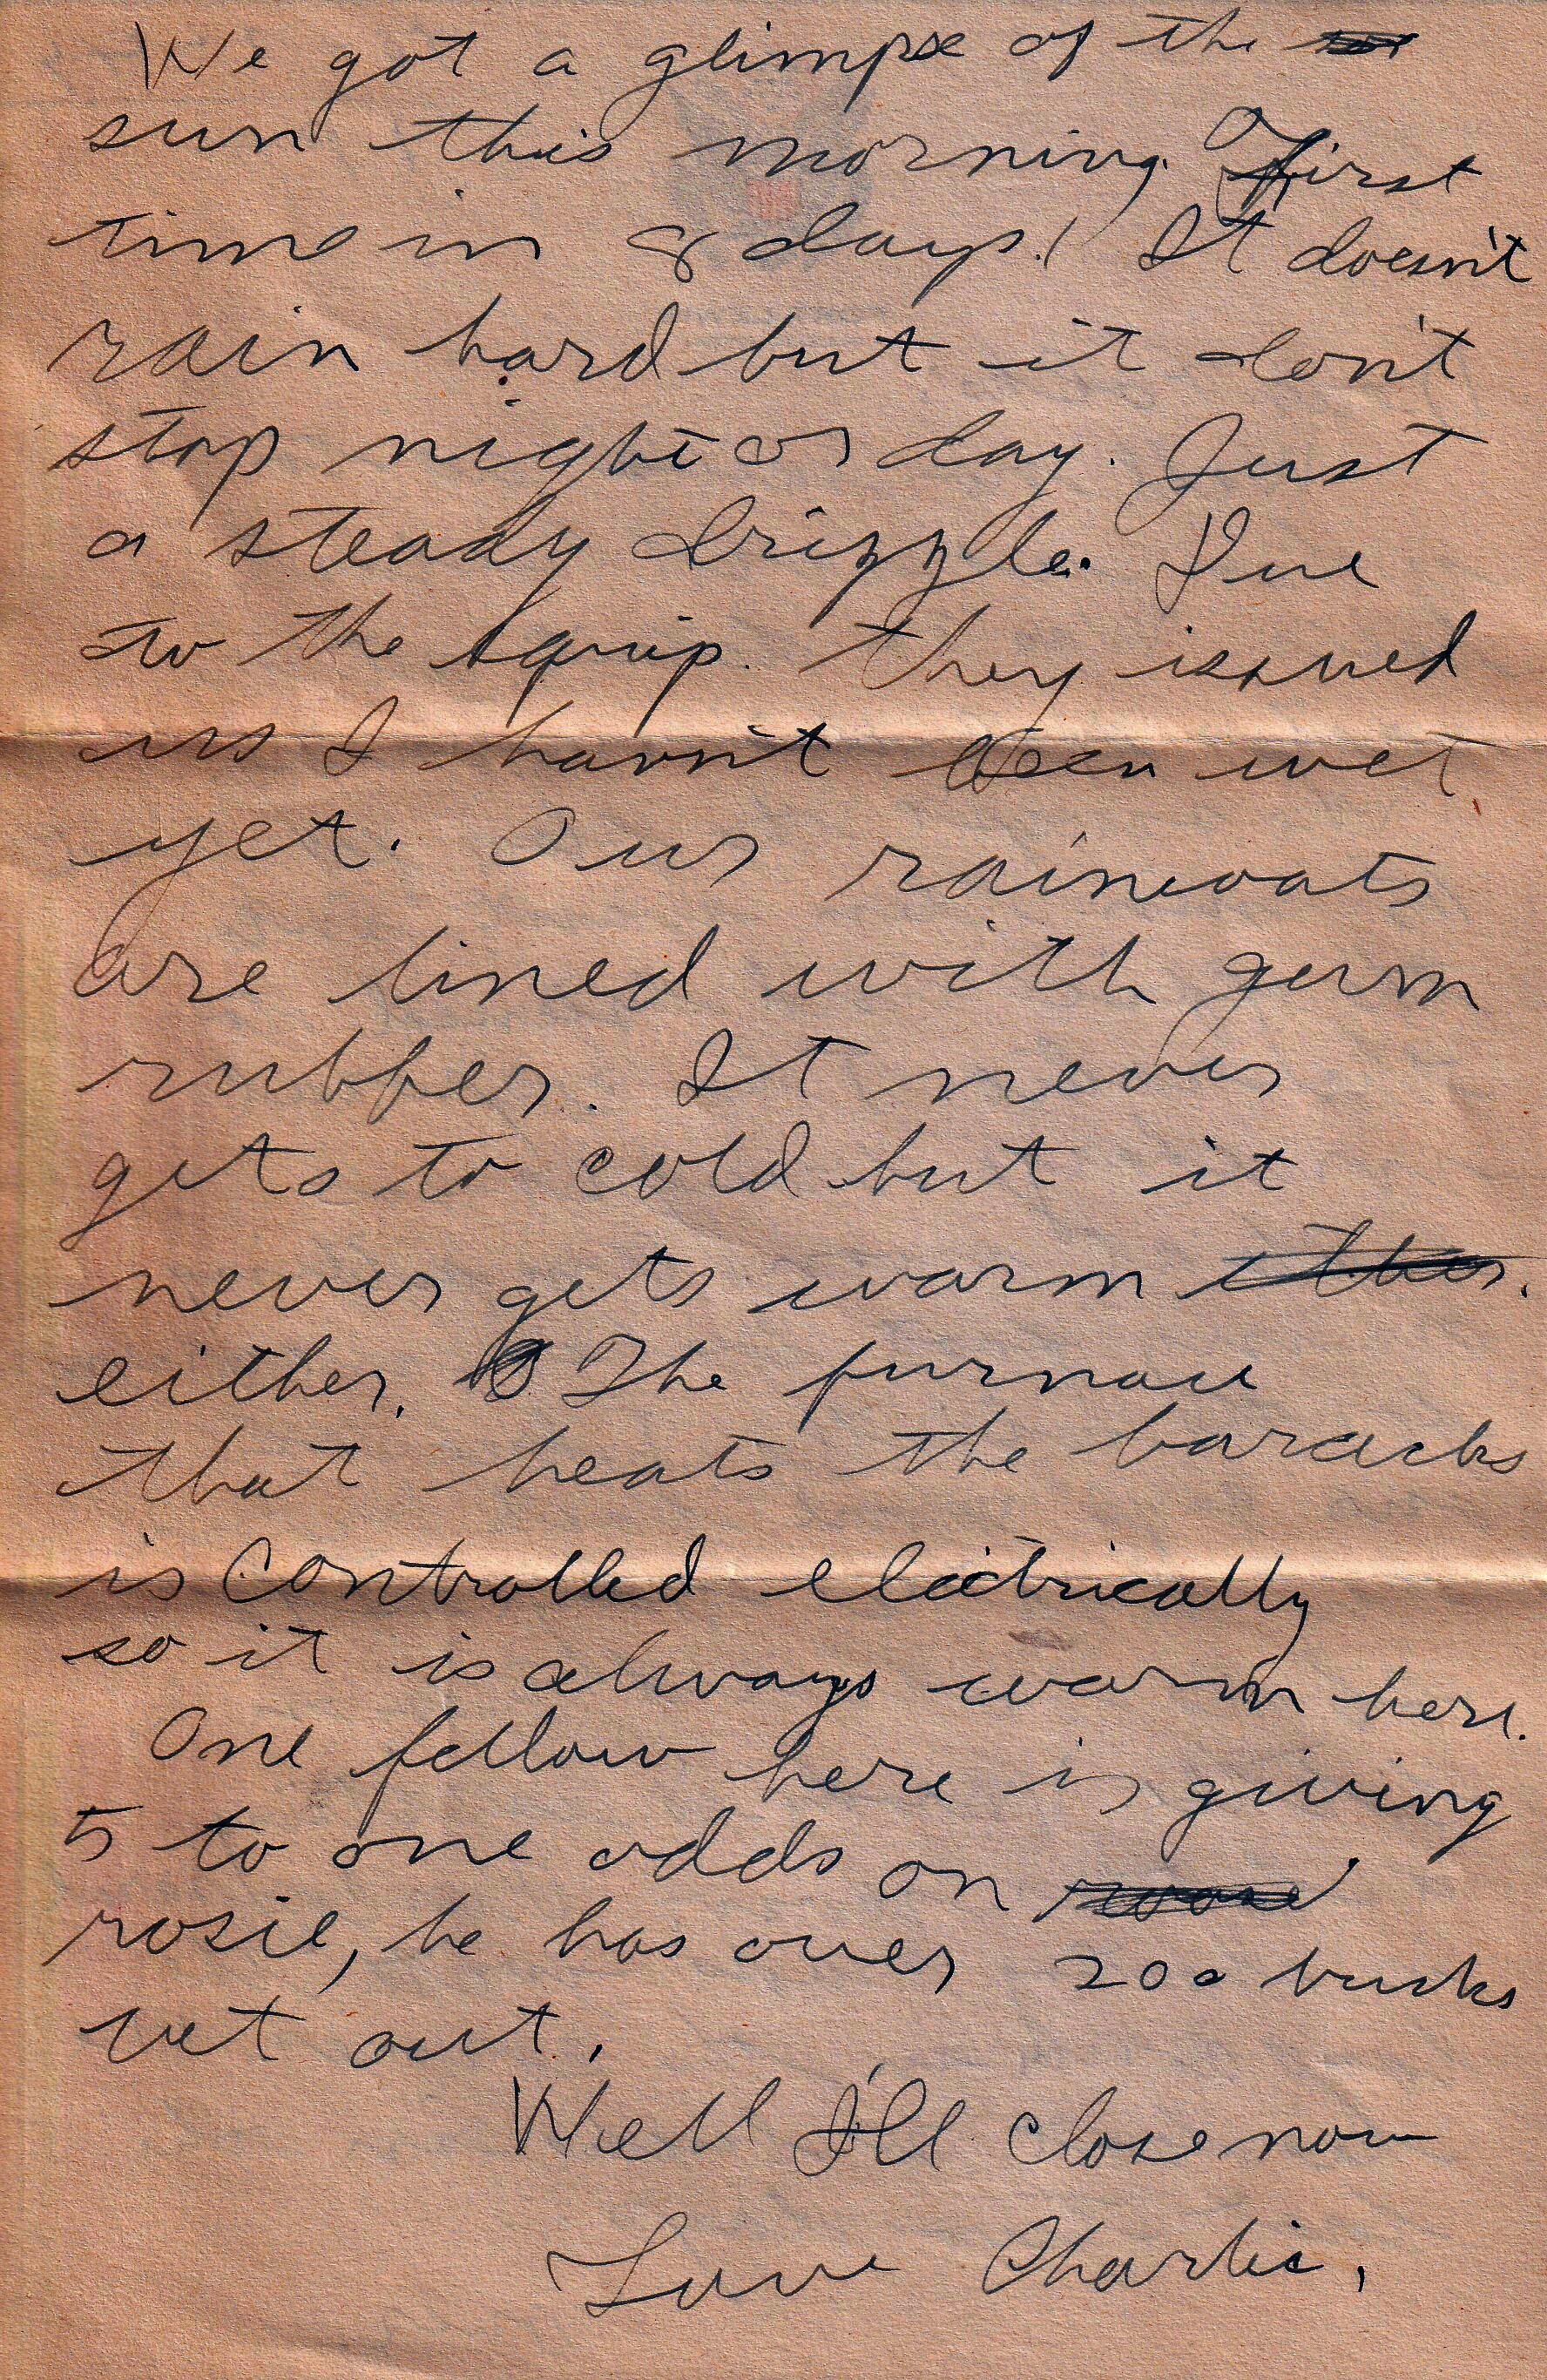 We got a glimpse of the
sun this morning. First
time in 8 days! It doesn't
rain hard but it don't
stop night or day. Just
a steady drizzle. Due
to the equip. they issued
us I havn't been wet
yet. Our raincoats
are lined with gum
rubber. It never
gets to cold but it
never gets warm ither.
either. The furnace
that heats the baracks
is controlled electrically
so it is always warm here.
One fellow here is giving
5 to one odds on
rosie, he has over 200 bucks
out.
Well I'll close now
Love Charlie.